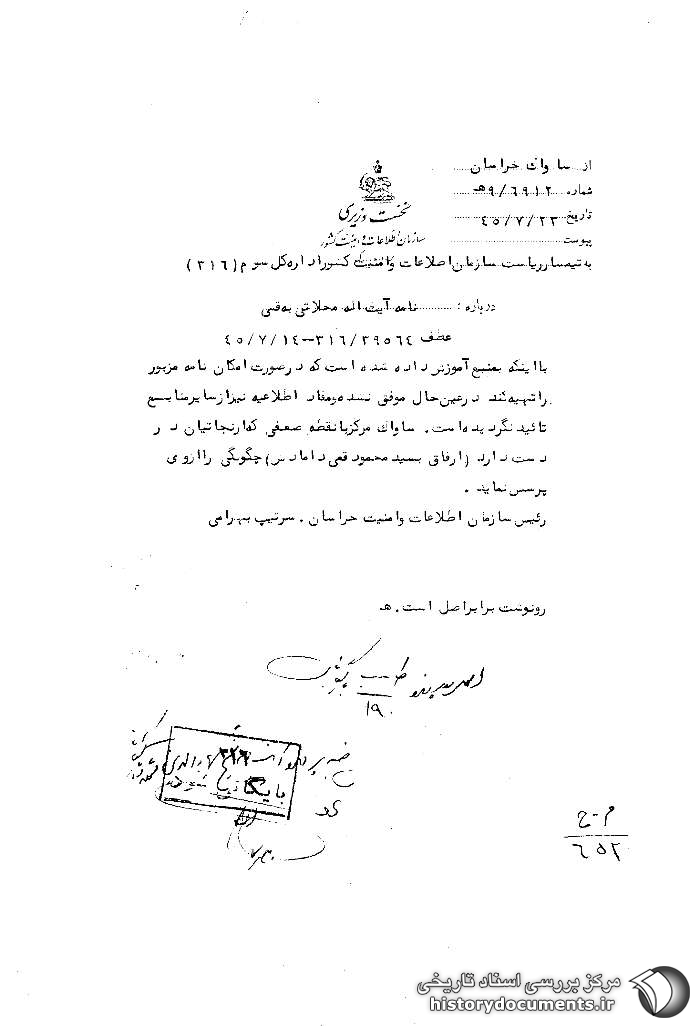 از ساواک خراسان
شماره ۹/۶۹۱۲هـ
تاریخ ۴۵/۷/۲۳
پیوست
نخست وزیری
سازمان اطلاعات و امنیت کشور
به تیمسار ریاست سازمان اطلاعات و امنیت کشور اداره کل سوم (۳۱۶)
درباره : نامه آیت اله محلاتی به قمی
عطف ۳۱۶/۲۹۵۶۴-۴۵/۷/۱۴
با اینکه بمنبع آموزش داده شده است که در صورت امکان نامه مزبور
را تهیه کند در عین حال موفق نشده و مفاد اطلاعیه نیز از سایر منابع
تائید نگردیده است . ساواک مرکز با نقطه ضعفی که از نجاتیان در
دست دارد (ارفاق بسید محمود قمی دامادش) چگونگی را از وی
پرسش نماید .
رئیس سازمان اطلاعات و امنیت خراسان . سرتیپ بهرامی
رونوشت برابر اصل است . هـ
۱۹
بایگانی شود
م-ح
۶۵۲
مرکز بررسی اسناد تاریخی
historydocuments.ir